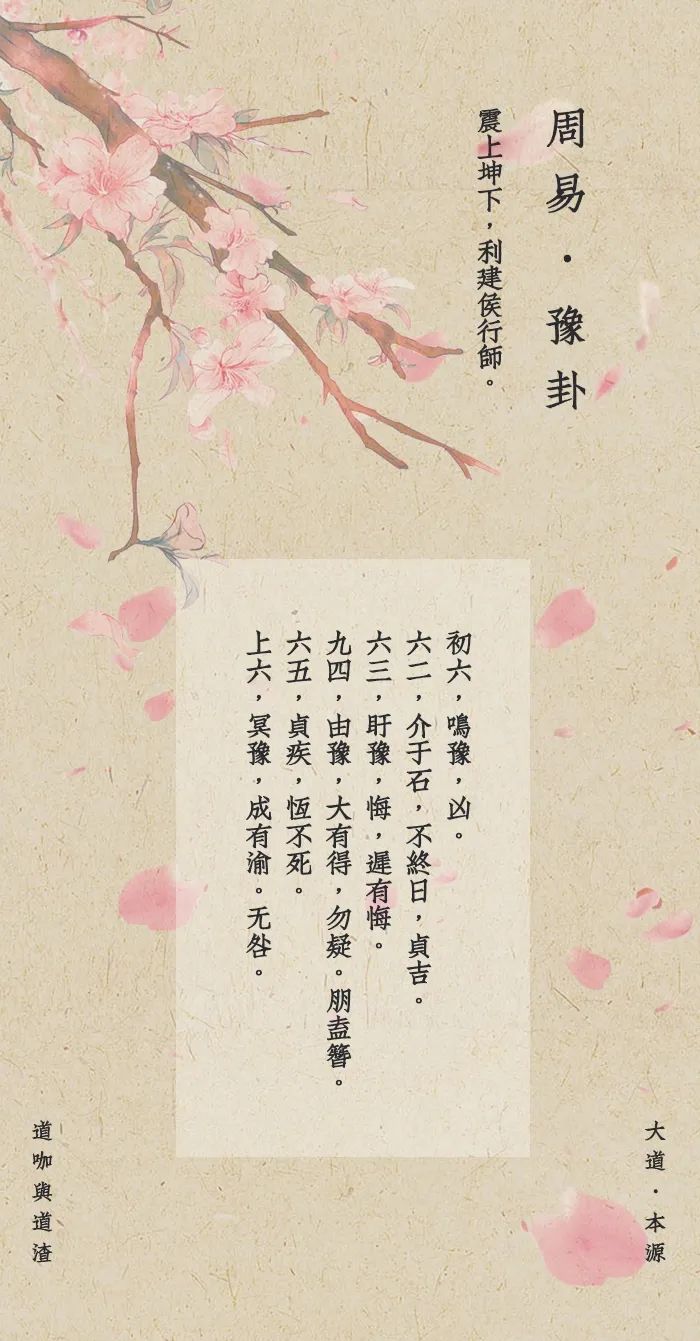 周易·豫卦
震上坤下，利建侯行師。
初六，鳴豫，凶。
六二，介于石，不終日，貞吉。
六三，盱豫，悔，遲有悔。
九四，由豫，大有得，勿疑。朋盍簪。
六五，貞疾，恆不死。
上六，冥豫，成有渝。无咎。
大道·本源
道咖與道渣